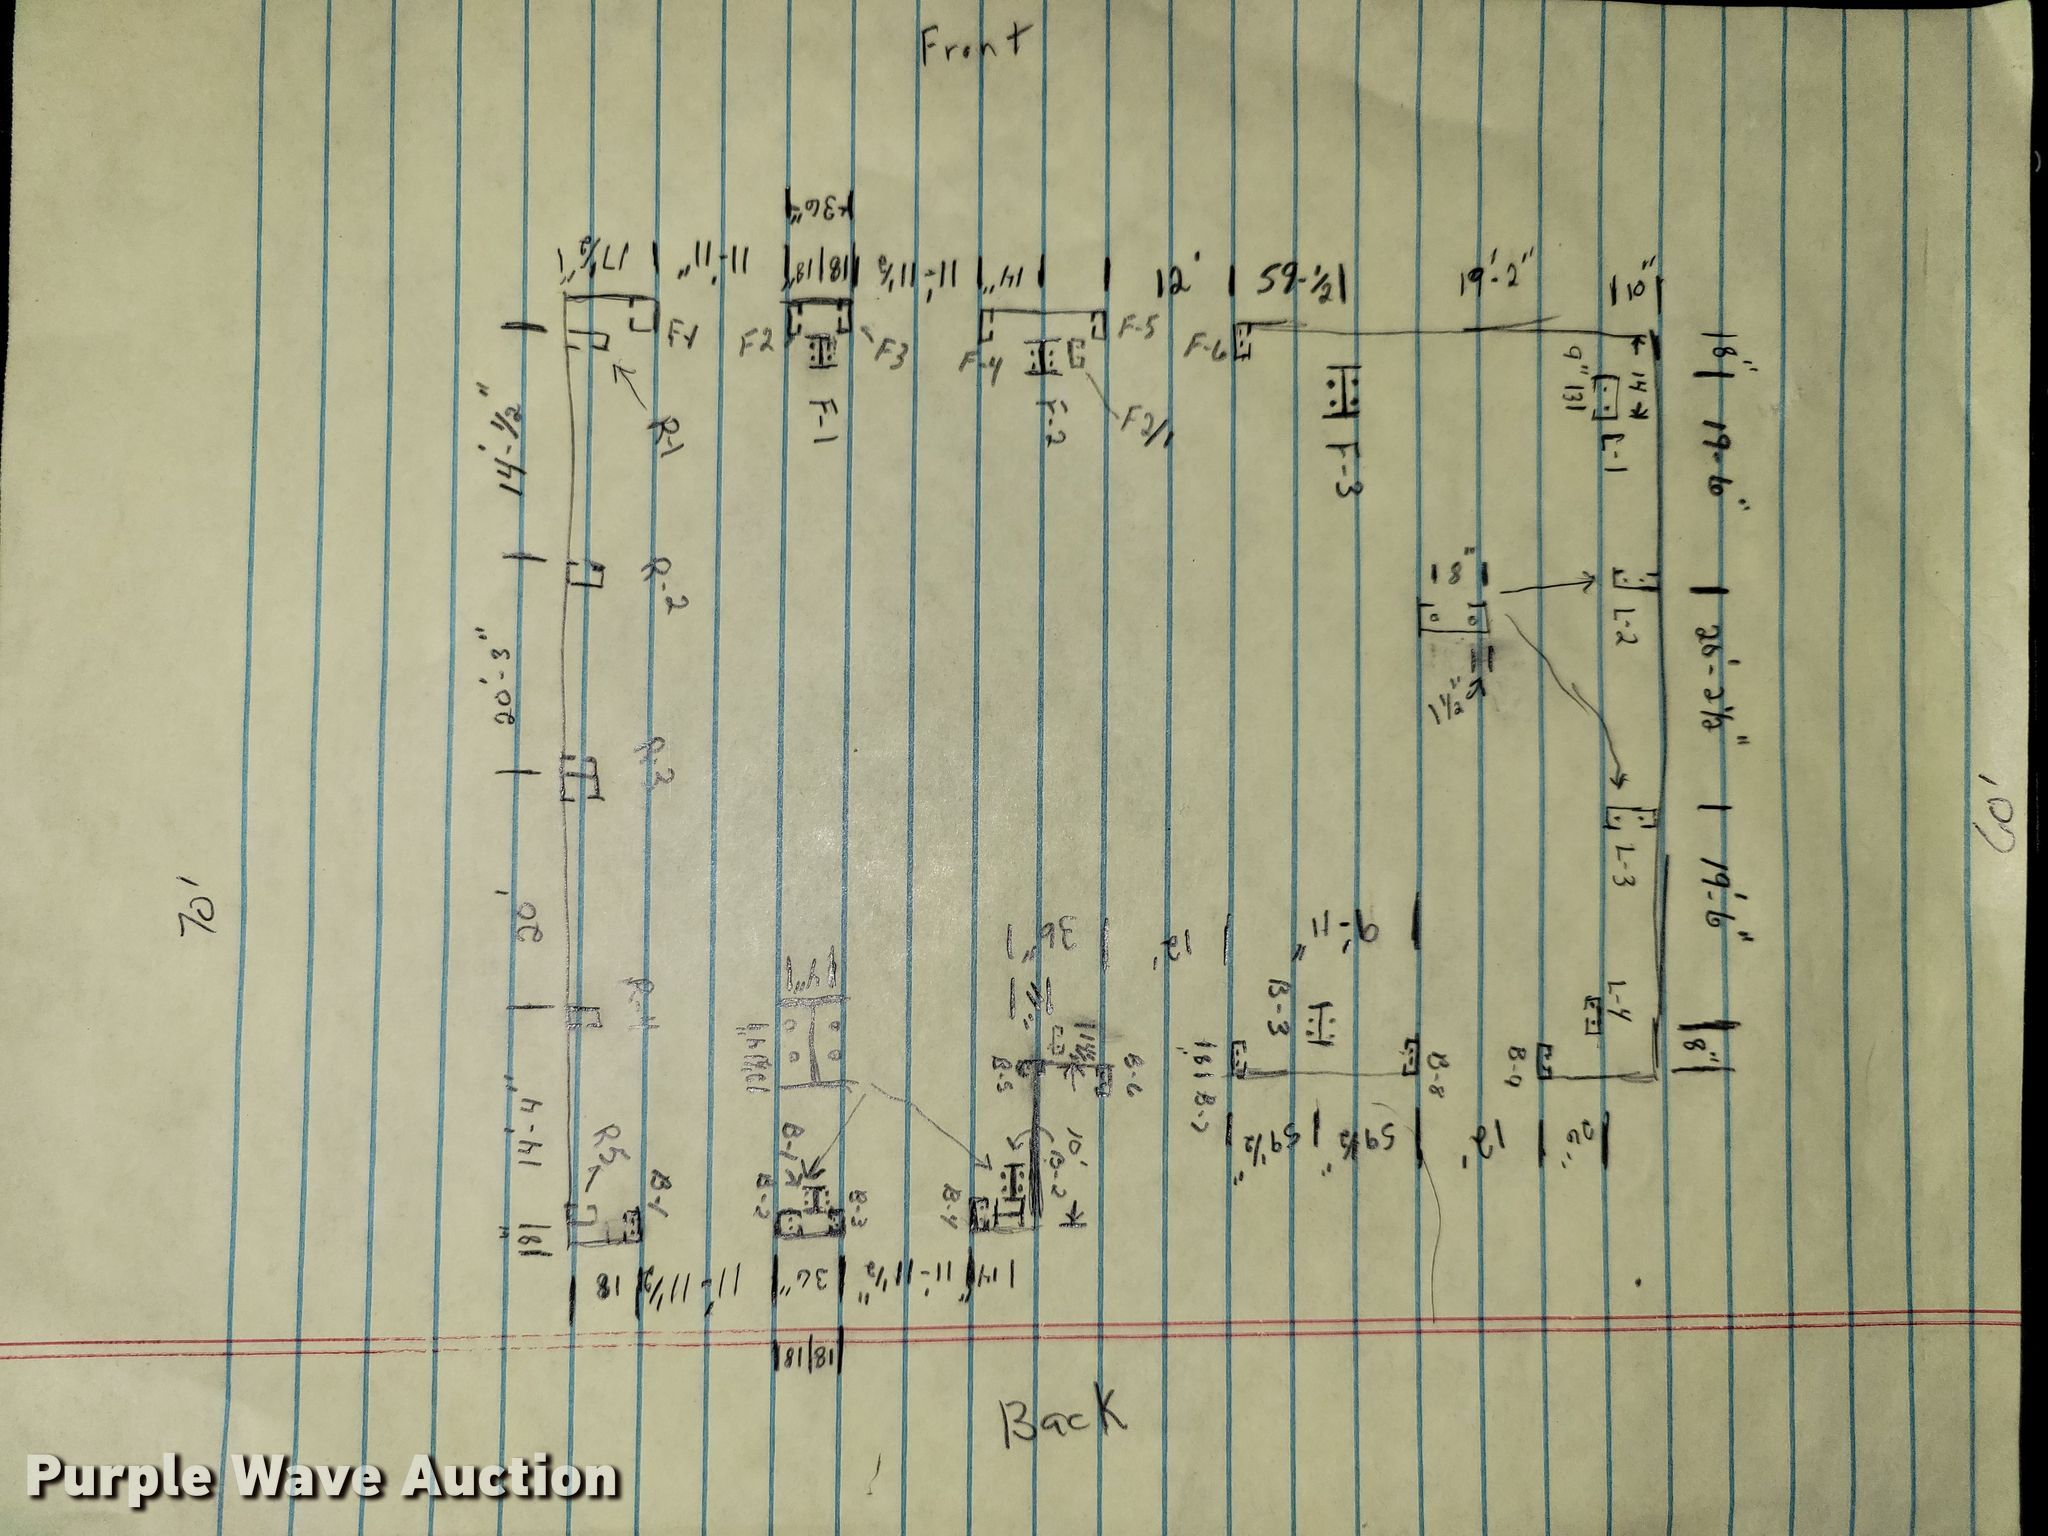 Front
36"
17½"
11'-11"
18|18"
11'-11½
14"
12'
59-½
19'-2"
10"
F2
F3
F-4
F-5
F-6
F-1
F-2
F2/1
F-3
R-1
14'-½"
9"
14
L-1
18"
19'-6"
R-2
20'-3"
18"
1½"
L-2
20'-2½"
R-3
70'
60'
20'
L-3
19'-6"
36"
12'
9'-11"
14"
B-3
L-4
18"
R-4
B-5
B-6
B-7
B-8
B-9
14'-4"
R5
B-1
B-1
B-2
B-3
B-4
10'
B-2
59½"
59½"
12'
18
18
11'-11½
36"
11'-11½"
14"
18|18
Back
Purple Wave Auction